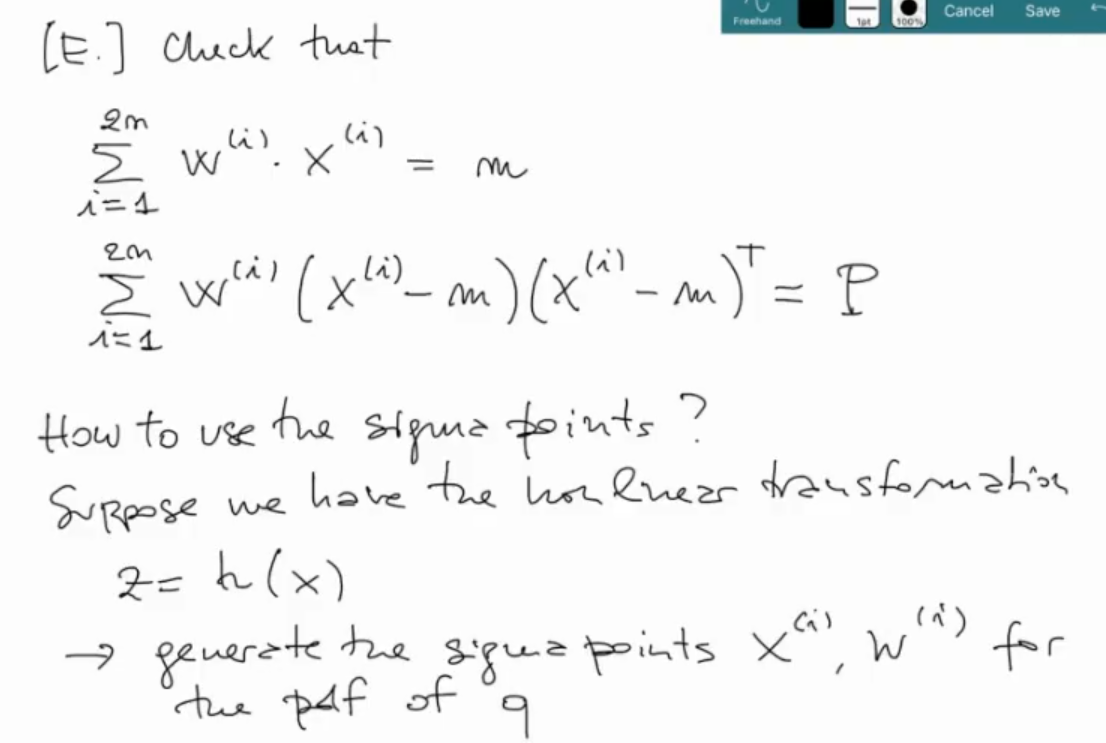 Freehand 1pt 100% Cancel Save
[E.] Check that
2n
∑ w^(i) · x^(i) = m
i=1
2n
∑ w^(i) (x^(i) - m)(x^(i) - m)^T = P
i=1
How to use the sigma points?
Suppose we have the nonlinear transformation
z = h(x)
→ generate the sigma points x^(i), w^(i) for
the pdf of q